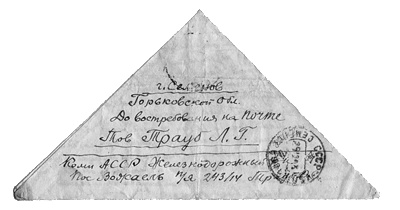 г. Семенов
Горьковской Обл.
До востребования на Почте
Тов Трауб Л. Г.
Коми АССР Железнодорожный
пос Вожаель п/я 243/14
СССР